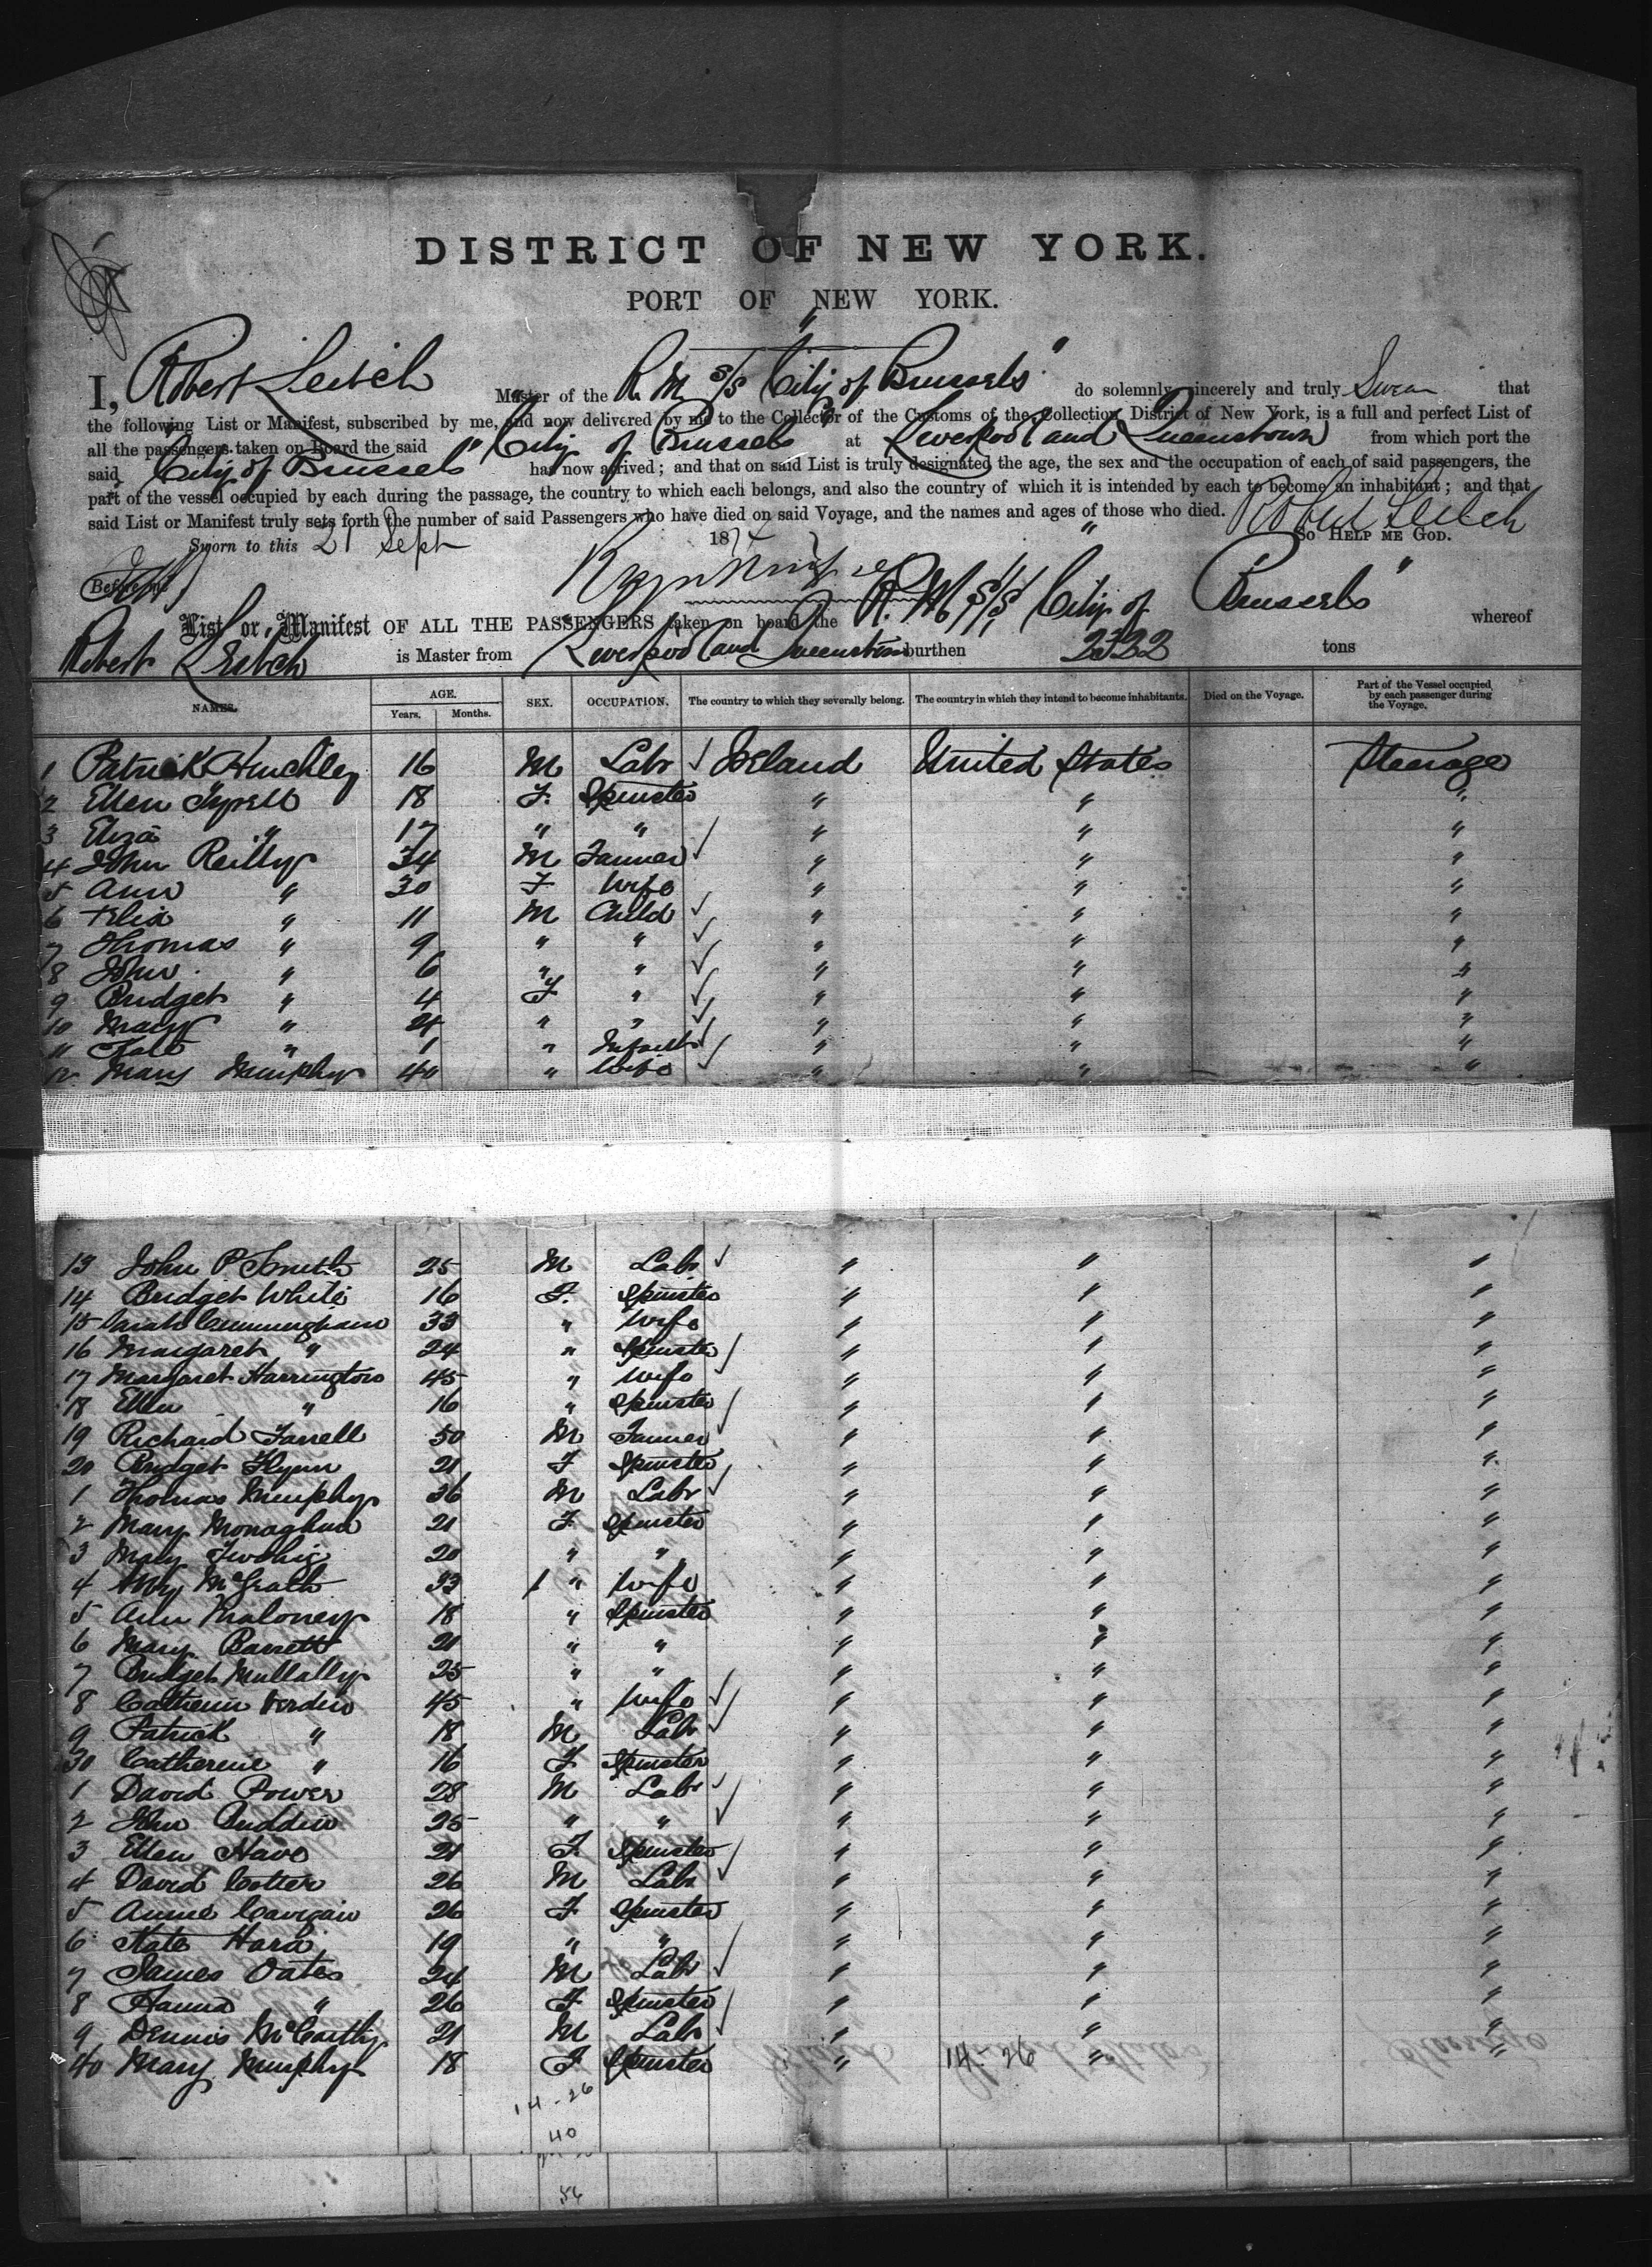 DISTRICT OF NEW YORK.
PORT OF NEW YORK.
I, Robert Leitch Master of the R. M. S/S "City of Brussels" do solemnly, sincerely and truly Swear that
the following List or Manifest, subscribed by me, and now delivered by me to the Collector of the Customs of the Collection District of New York, is a full and perfect List of
all the passengers taken on board the said "City of Brussels at Liverpool and Queenstown from which port the
said "City of Brussels" has now arrived; and that on said List is truly designated the age, the sex and the occupation of each of said passengers, the
part of the vessel occupied by each during the passage, the country to which each belongs, and also the country of which it is intended by each to become an inhabitant; and that
said List or Manifest truly sets forth the number of said Passengers who have died on said Voyage, and the names and ages of those who died. Robert Leitch
Sworn to this 21 Sept 187 So HELP ME GOD.
Before me
List or Manifest OF ALL THE PASSENGERS taken on board the R. M. S/S "City of Brussels" whereof
Robert Leitch is Master from Liverpool and Queenstown burthen 2322 tons
NAMES. AGE. Years. Months. SEX. OCCUPATION. The country to which they severally belong. The country in which they intend to become inhabitants. Died on the Voyage. Part of the Vessel occupied by each passenger during the Voyage.
1 Patrick Hinchley 16 M Labr ✓ Ireland United States Steerage
2 Ellen Tyrell 18 F. Spinster " " "
3 Eliza " 17 " " ✓ " " "
4 John Reilly 34 M Farmer ✓ " " "
5 Ann " 30 F Wife " " "
6 Felix " 11 M Child ✓ " " "
7 Thomas " 9 " " ✓ " " "
8 John " 6 " " ✓ " " "
9 Bridget " 4 F " ✓ " " "
10 Mary " " " ✓ " " "
11 Kate " 1 " Infant ✓ " " "
12 Mary Murphy 40 " Wife ✓ " " "
13 John P Smith 25 M Labr ✓ " " "
14 Bridget White 16 F. Spinster " " "
15 Sarah Cunningham 33 " Wife " " "
16 Margaret " 24 " Spinster ✓ " " "
17 Margaret Harrington 45 " Wife " " "
18 Ellen " 16 " Spinster ✓ " " "
19 Richard Farrell 50 M Farmer ✓ " " "
20 Bridget Flynn 21 F Spinster " " "
1 Thomas Murphy 36 M Labr ✓ " " "
2 Mary Monaghan 21 F Spinster " " "
3 Mary Twohig 20 " " " " "
4 McGrath 33 " Wife " " "
5 Ann Maloney 18 " Spinster " " "
6 Mary Barrett 21 " " " " "
7 Bridget Mullally 25 " " " " "
8 Catherine 45 " Wife ✓ " " "
9 Patrick " 18 M Labr ✓ " " "
30 Catherine " 16 F Spinster " " "
1 David Power 28 M Labr ✓ " " "
2 John 25 " " ✓ " " "
3 Ellen 21 F. Spinster " " "
4 David Cotter 26 M Labr ✓ " " "
5 Annie 26 F Spinster " " "
6 Kate Hara 19 " " " " "
7 James Oates 24 M Labr ✓ " " "
8 Hanna " 26 F Spinster " " "
9 Dennis McCarthy 21 M Labr ✓ " " "
40 Mary Murphy 18 F Spinster " 14-26 " "
14-26
40
56